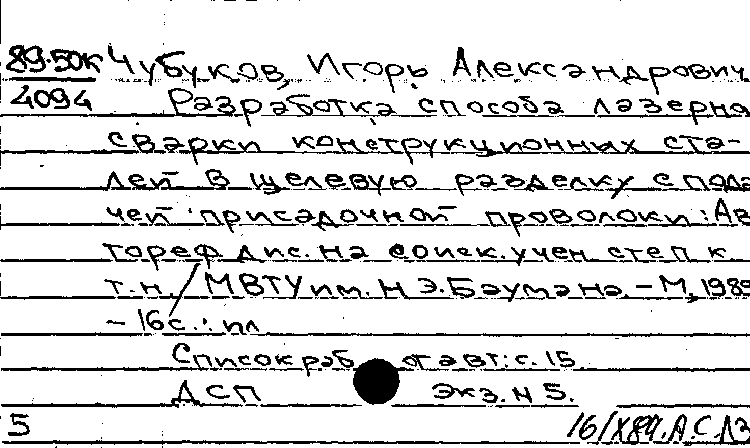 89-50К Чубуков, Игорь Александрович
4094 Разработка способа лазерно
сварки конструкционных ста-
лей в щелевую разделку с пода
чей присадочной проволоки: Ав
тореф дис. на соиск. учен степ к.
т.н. / МВТУ им. Н Э. Баумана. – М, 1989
– 16 с. : ил
Список раб от авт: с. 15.
ДСП Экз. N 5.
5 16/X89. А.С.